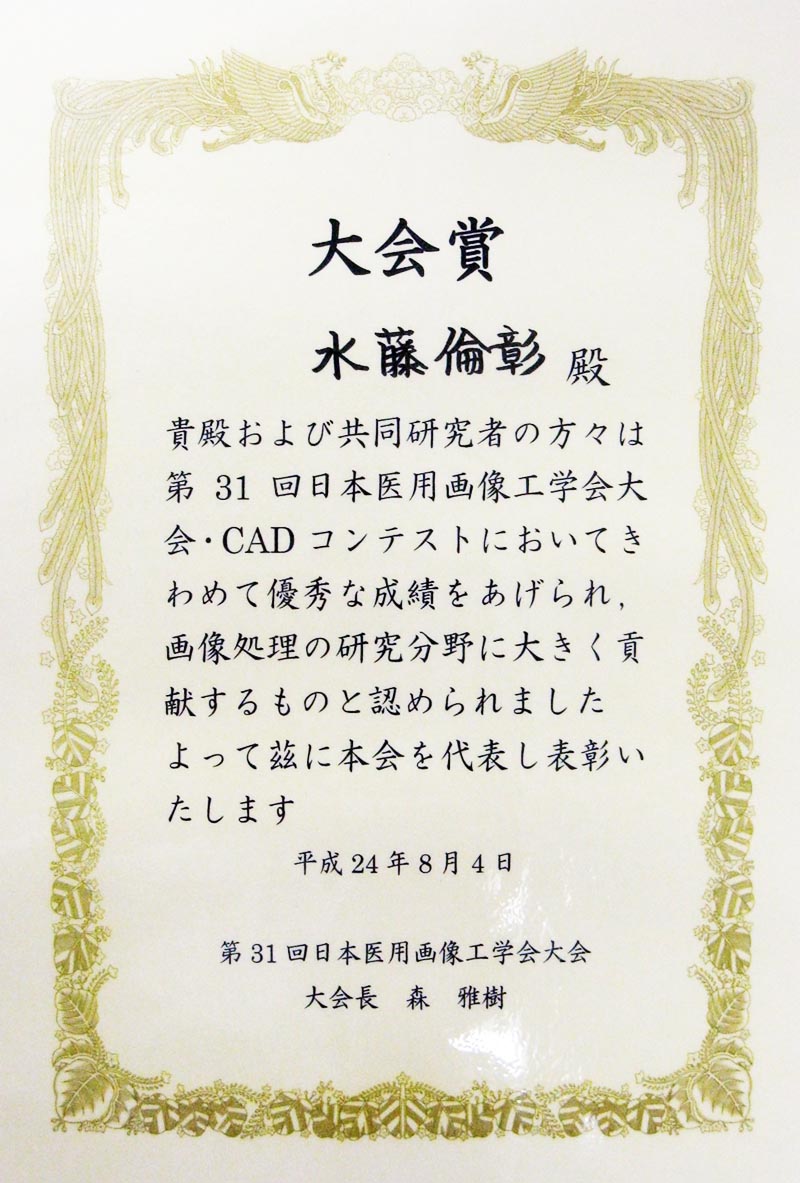 大会賞
水藤倫彰 殿
貴殿および共同研究者の方々は
第 31 回日本医用画像工学会大
会・CAD コンテストにおいてき
わめて優秀な成績をあげられ,
画像処理の研究分野に大きく貢
献するものと認められました
よって茲に本会を代表し表彰い
たします
平成 24 年 8 月 4 日
第 31 回日本医用画像工学会大会
大会長 森 雅樹